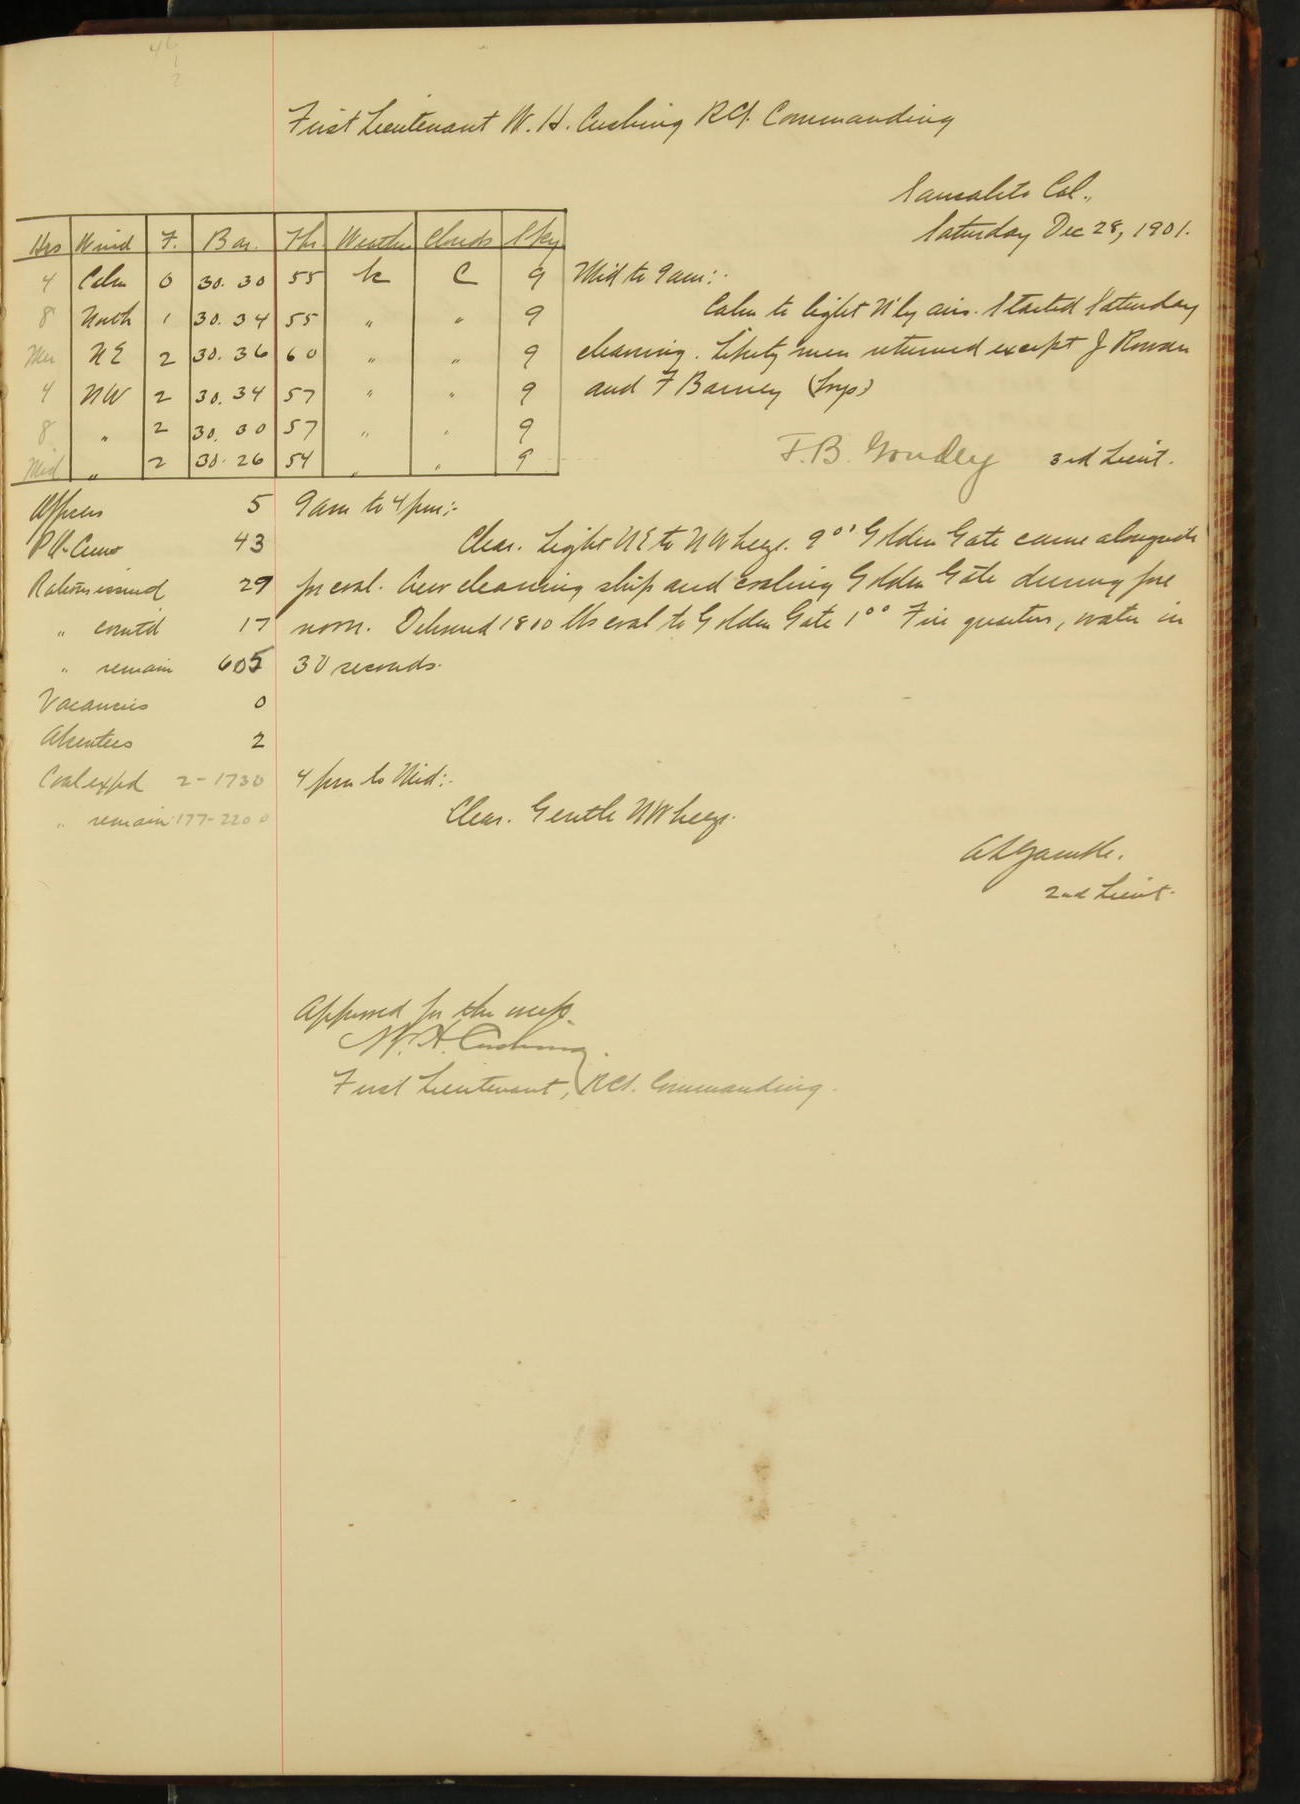 46
1
2
First Lieutenant W. H. Cushing RCS. Commanding
Sausalito Cal.,
Saturday Dec 28, 1901.
Hrs Wind F. Bar. Thr. Weather Clouds Sky
4 Calm 0 30.30 55 C 9
8 North 1 30.34 55 " " 9
Mer NE 2 30.36 60 " " 9
4 NW 2 30.34 57 " " 9
8 " 2 30.30 57 " " 9
Mid " 2 30.26 54 " " 9
Mid to 9 am:-
Calm to light N'ly airs. Started Saturday
cleaning. Liberty men returned except J Rowan
and F Barney
F. B. Goudey 3rd Lieut.
Officers 5
Crew 43
Rations issued 29
" com't'd 17
" remain 605
Vacancies 0
Absentees 2
Coal exp'd 2-1730
" remain 177-2200
9 am to 4 pm:-
Clear. Light NE to NW breeze. 9°° Golden Gate came alongside
for coal. Crew cleaning ship and coaling Golden Gate during fore
noon. Delivered 1810 lbs coal to Golden Gate 1°° Fire quarters, water in
30 seconds.
4 pm to Mid:-
Clear. Gentle NW breeze.
A L Gamble.
2nd Lieut.
Approved for the week
W. H. Cushing
First Lieutenant, RCS. Commanding.